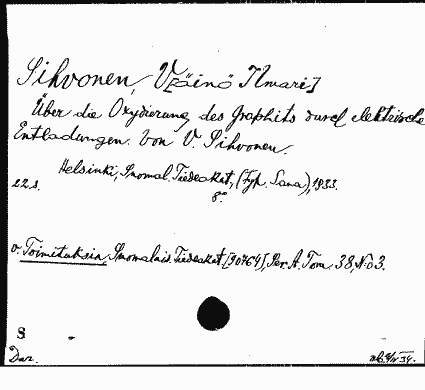 Sihvonen, V[äinö Ilmari]
Über die Oxydierung des Graphits durch elektrische
Entladungen. Von V. Sihvonen.
Helsinki, Suomal. Tiedeakat., (Typ. Sana), 1933.
22 s. 8°
v. Toimituksia, Suomalais. Tiedeakat. [90764], Ser. A. Tom. 38, No 3.
S
Dar.